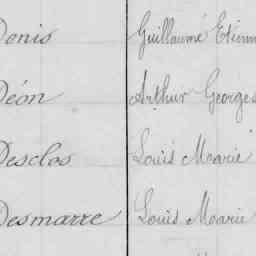 Denis Guillaumé Etienn
Déon Arthur Georges
Desclos Louis Mearie
Desmarre Louis Mearie